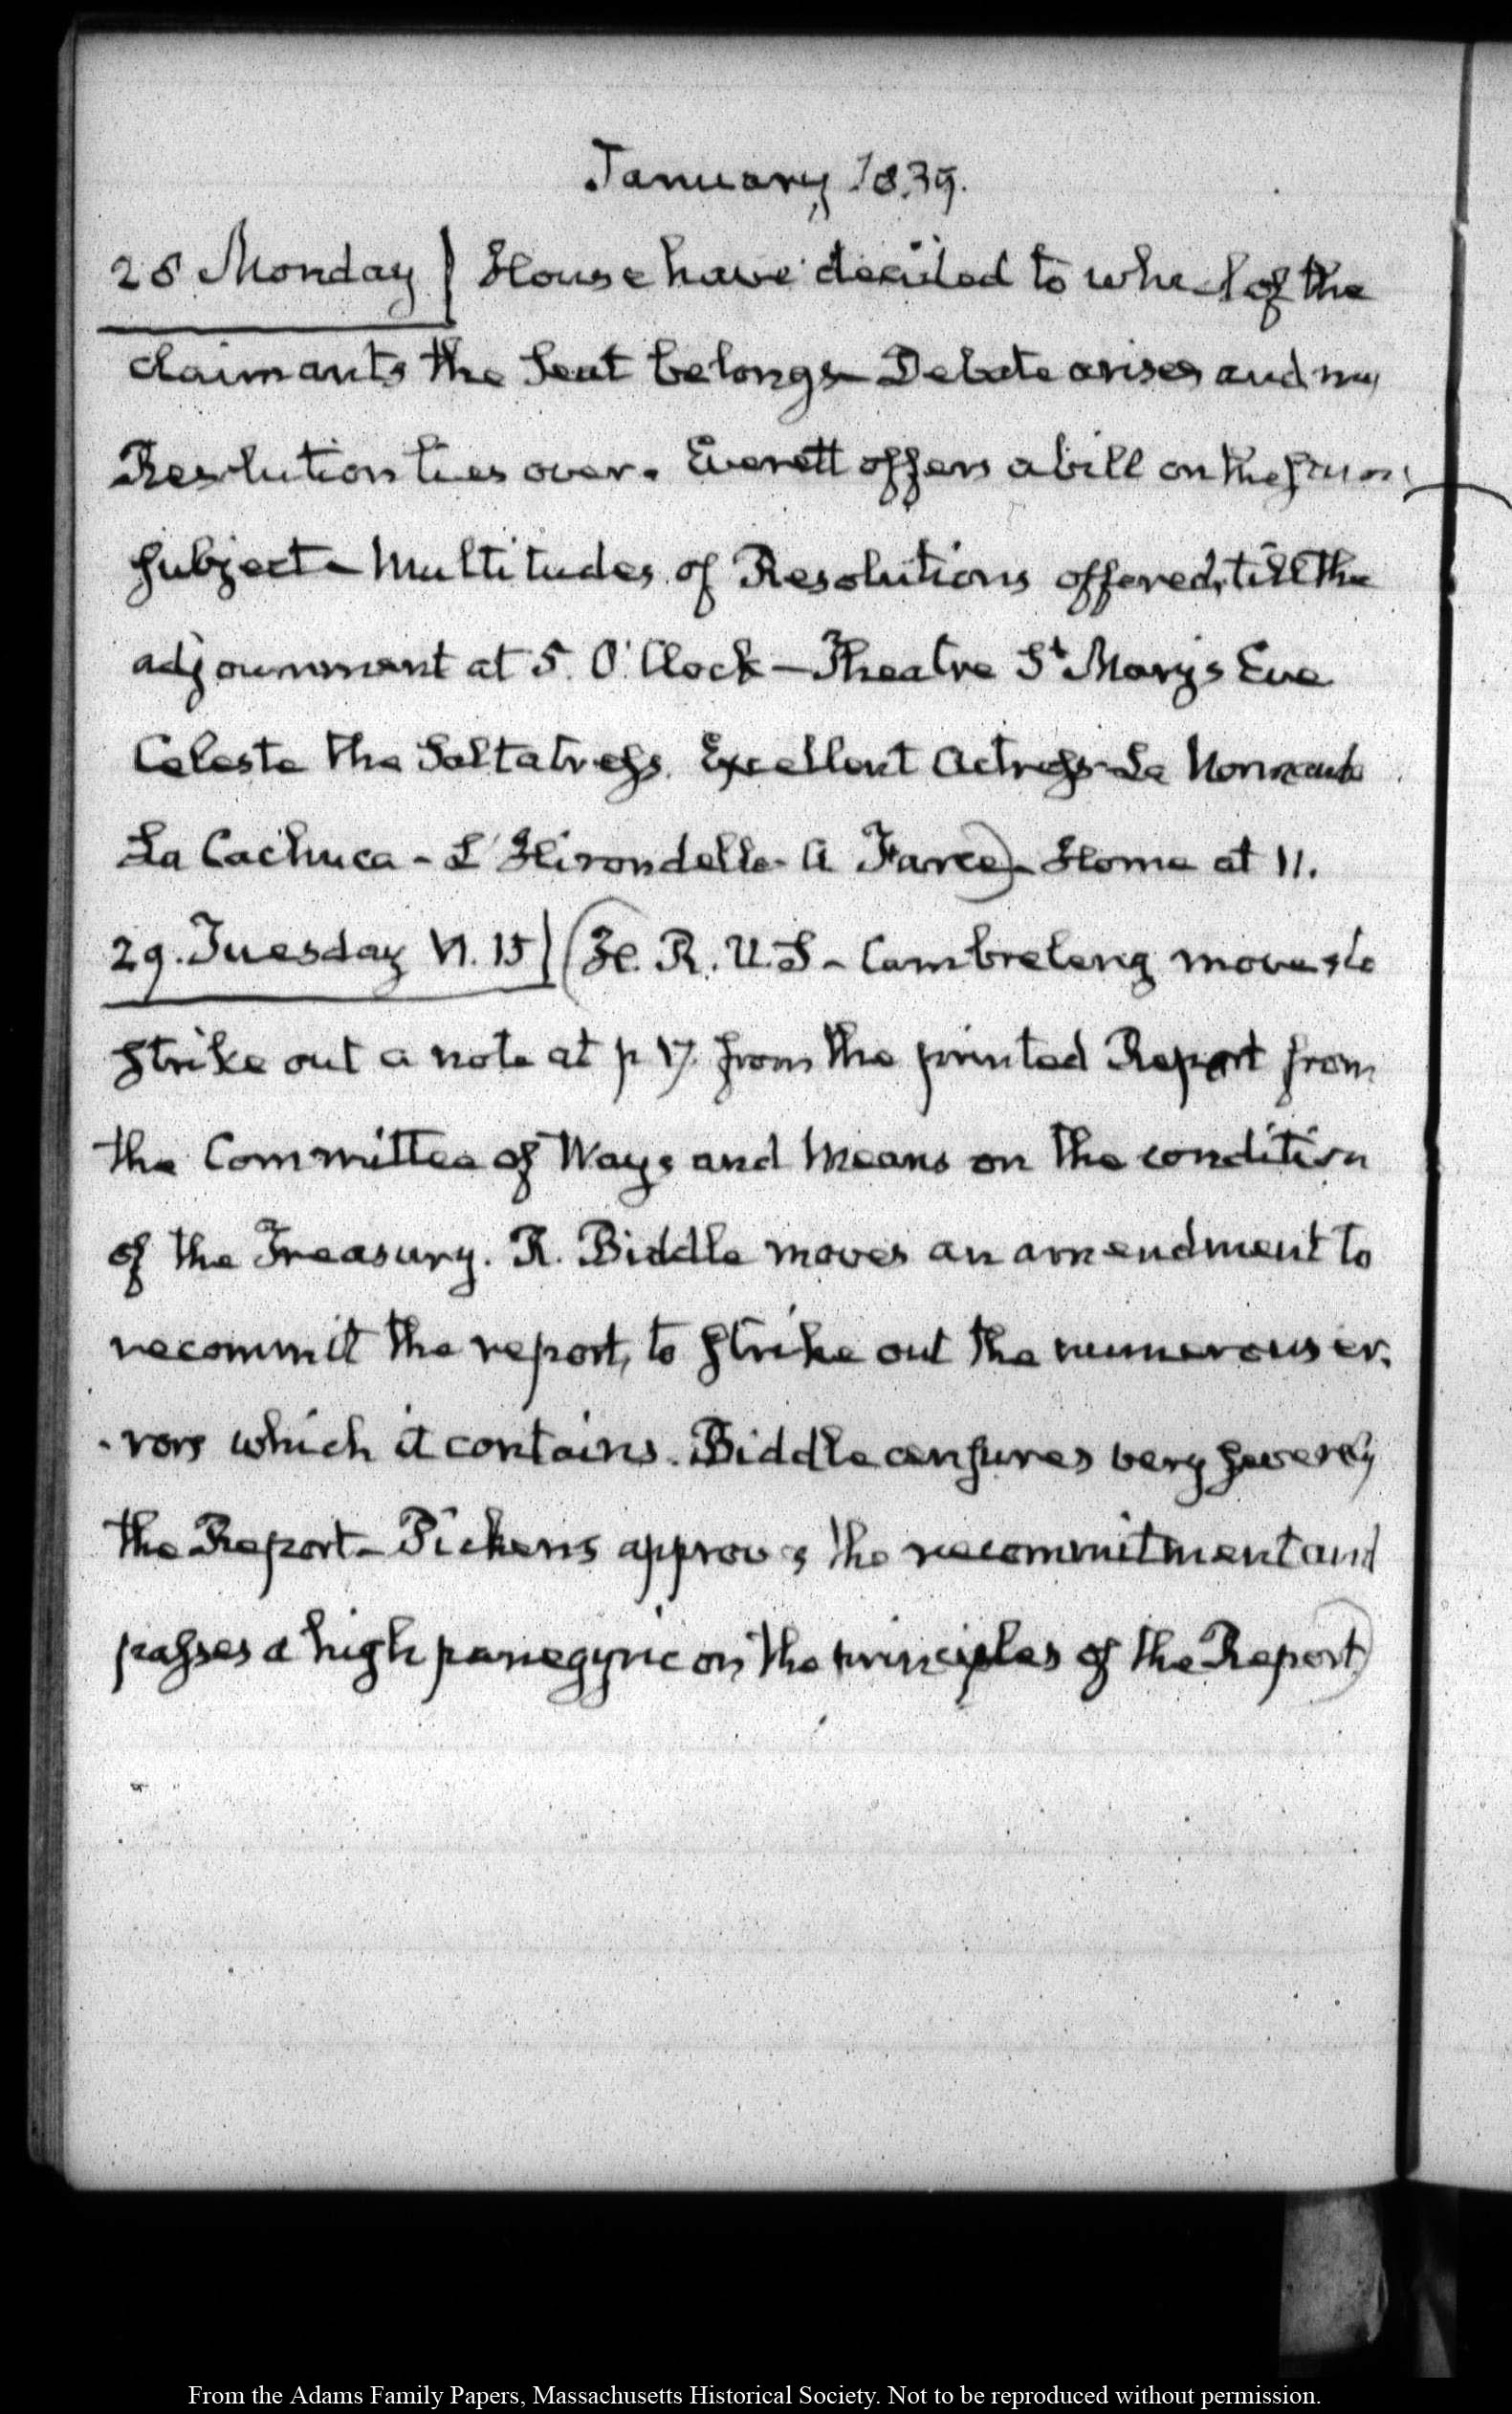 January 1839.
28 Monday } House have decided to which of the
claimants the Seat belongs – Debate arises and my
Resolution lies over. Everett offers a bill on the same
subject – Multitudes of Resolutions offered, till the
adjournment at 5. O'Clock – Theatre St Mary's Eve
Celeste the Saltatress. Excellent Actress – La Normande
La Cachuca – L'Hirondelle – A Farce) – Home at 11.
29. Tuesday VI. 15 } (H. R. U. S – Cambreleng moves to
strike out a note at p 17. from the printed Report from
the Committee of Ways and Means on the condition
of the Treasury. R. Biddle moves an amendment to
recommit the report, to strike out the numerous er-
-rors which it contains. Biddle censures very severely
the Report – Pickens approves the recommitment and
passes a high panegyric on the principles of the Report)
From the Adams Family Papers, Massachusetts Historical Society. Not to be reproduced without permission.